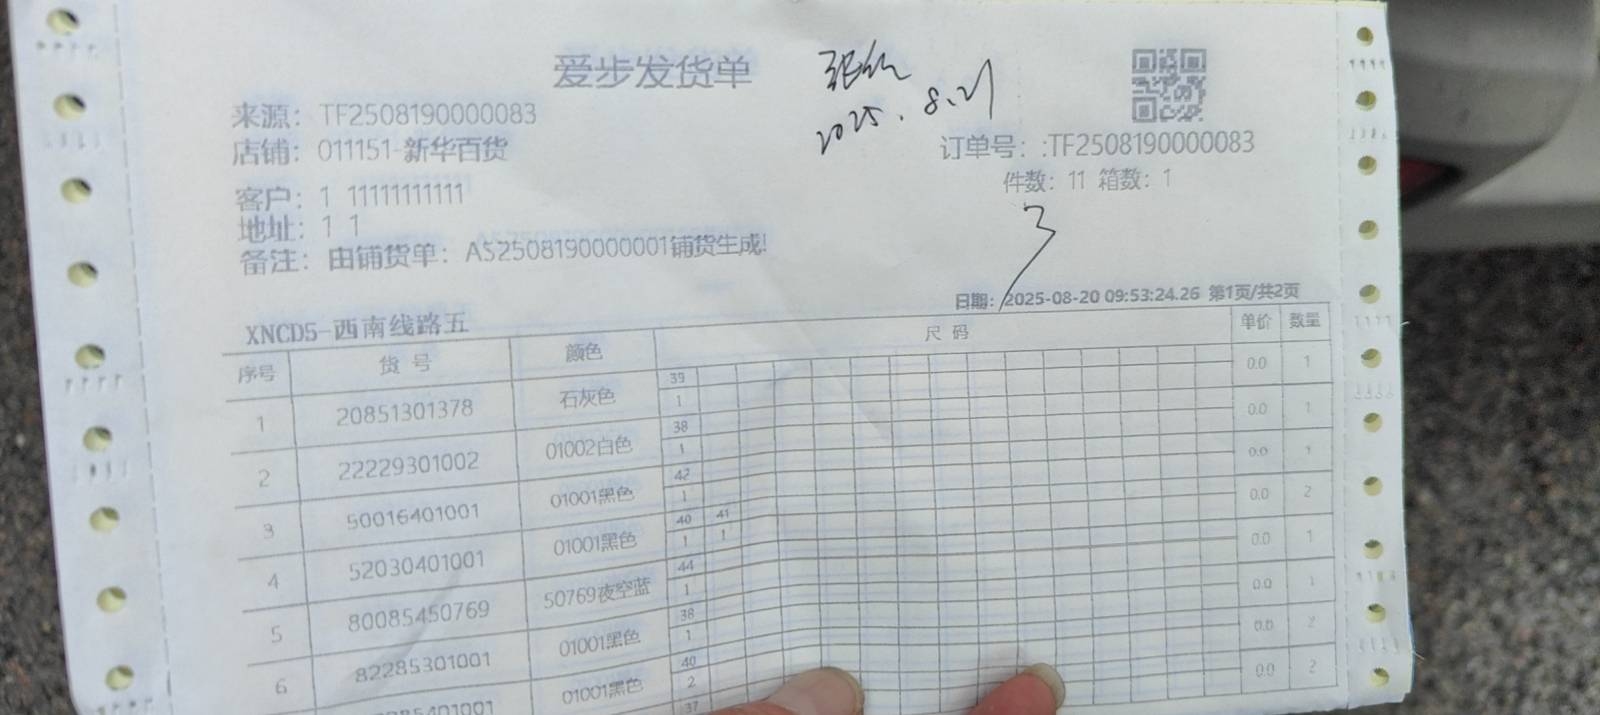 爱步发货单
2025.8.21
来源：TF2508190000083
店铺：011151-新华百货
订单号：:TF2508190000083
客户：1 11111111111
件数：11 箱数：1
地址：1 1
3
备注：由铺货单：AS2508190000001铺货生成!
日期：2025-08-20 09:53:24.26 第1页/共2页
XNCD5-西南线路五
序号 货号 颜色 尺码 单价 数量
1 20851301378 石灰色 39 1 0.0 1
2 22229301002 01002白色 38 1 0.0 1
3 50016401001 01001黑色 42 1 0.0 1
4 52030401001 01001黑色 40 41 1 1 0.0 2
5 80085450769 50769夜空蓝 44 1 0.0 1
6 82285301001 01001黑色 38 1 0.0 1
01001黑色 40 2 0.0 2
37